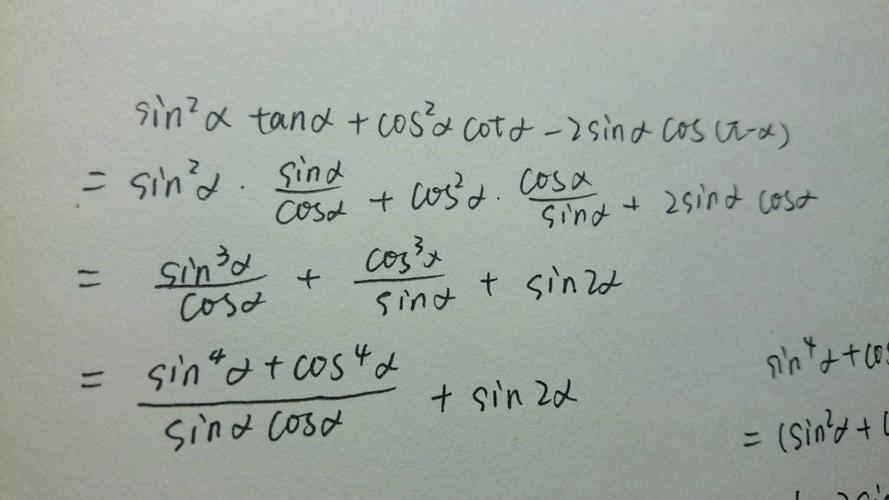 sin²α tanα + cos²α cotα - 2sinα cos(π-α)
= sin²α · sinα/cosα + cos²α · cosα/sinα + 2sinα cosα
= sin³α/cosα + cos³α/sinα + sin2α
= (sin⁴α + cos⁴α)/(sinα cosα) + sin2α
sin⁴α + cos
= (sin²α +